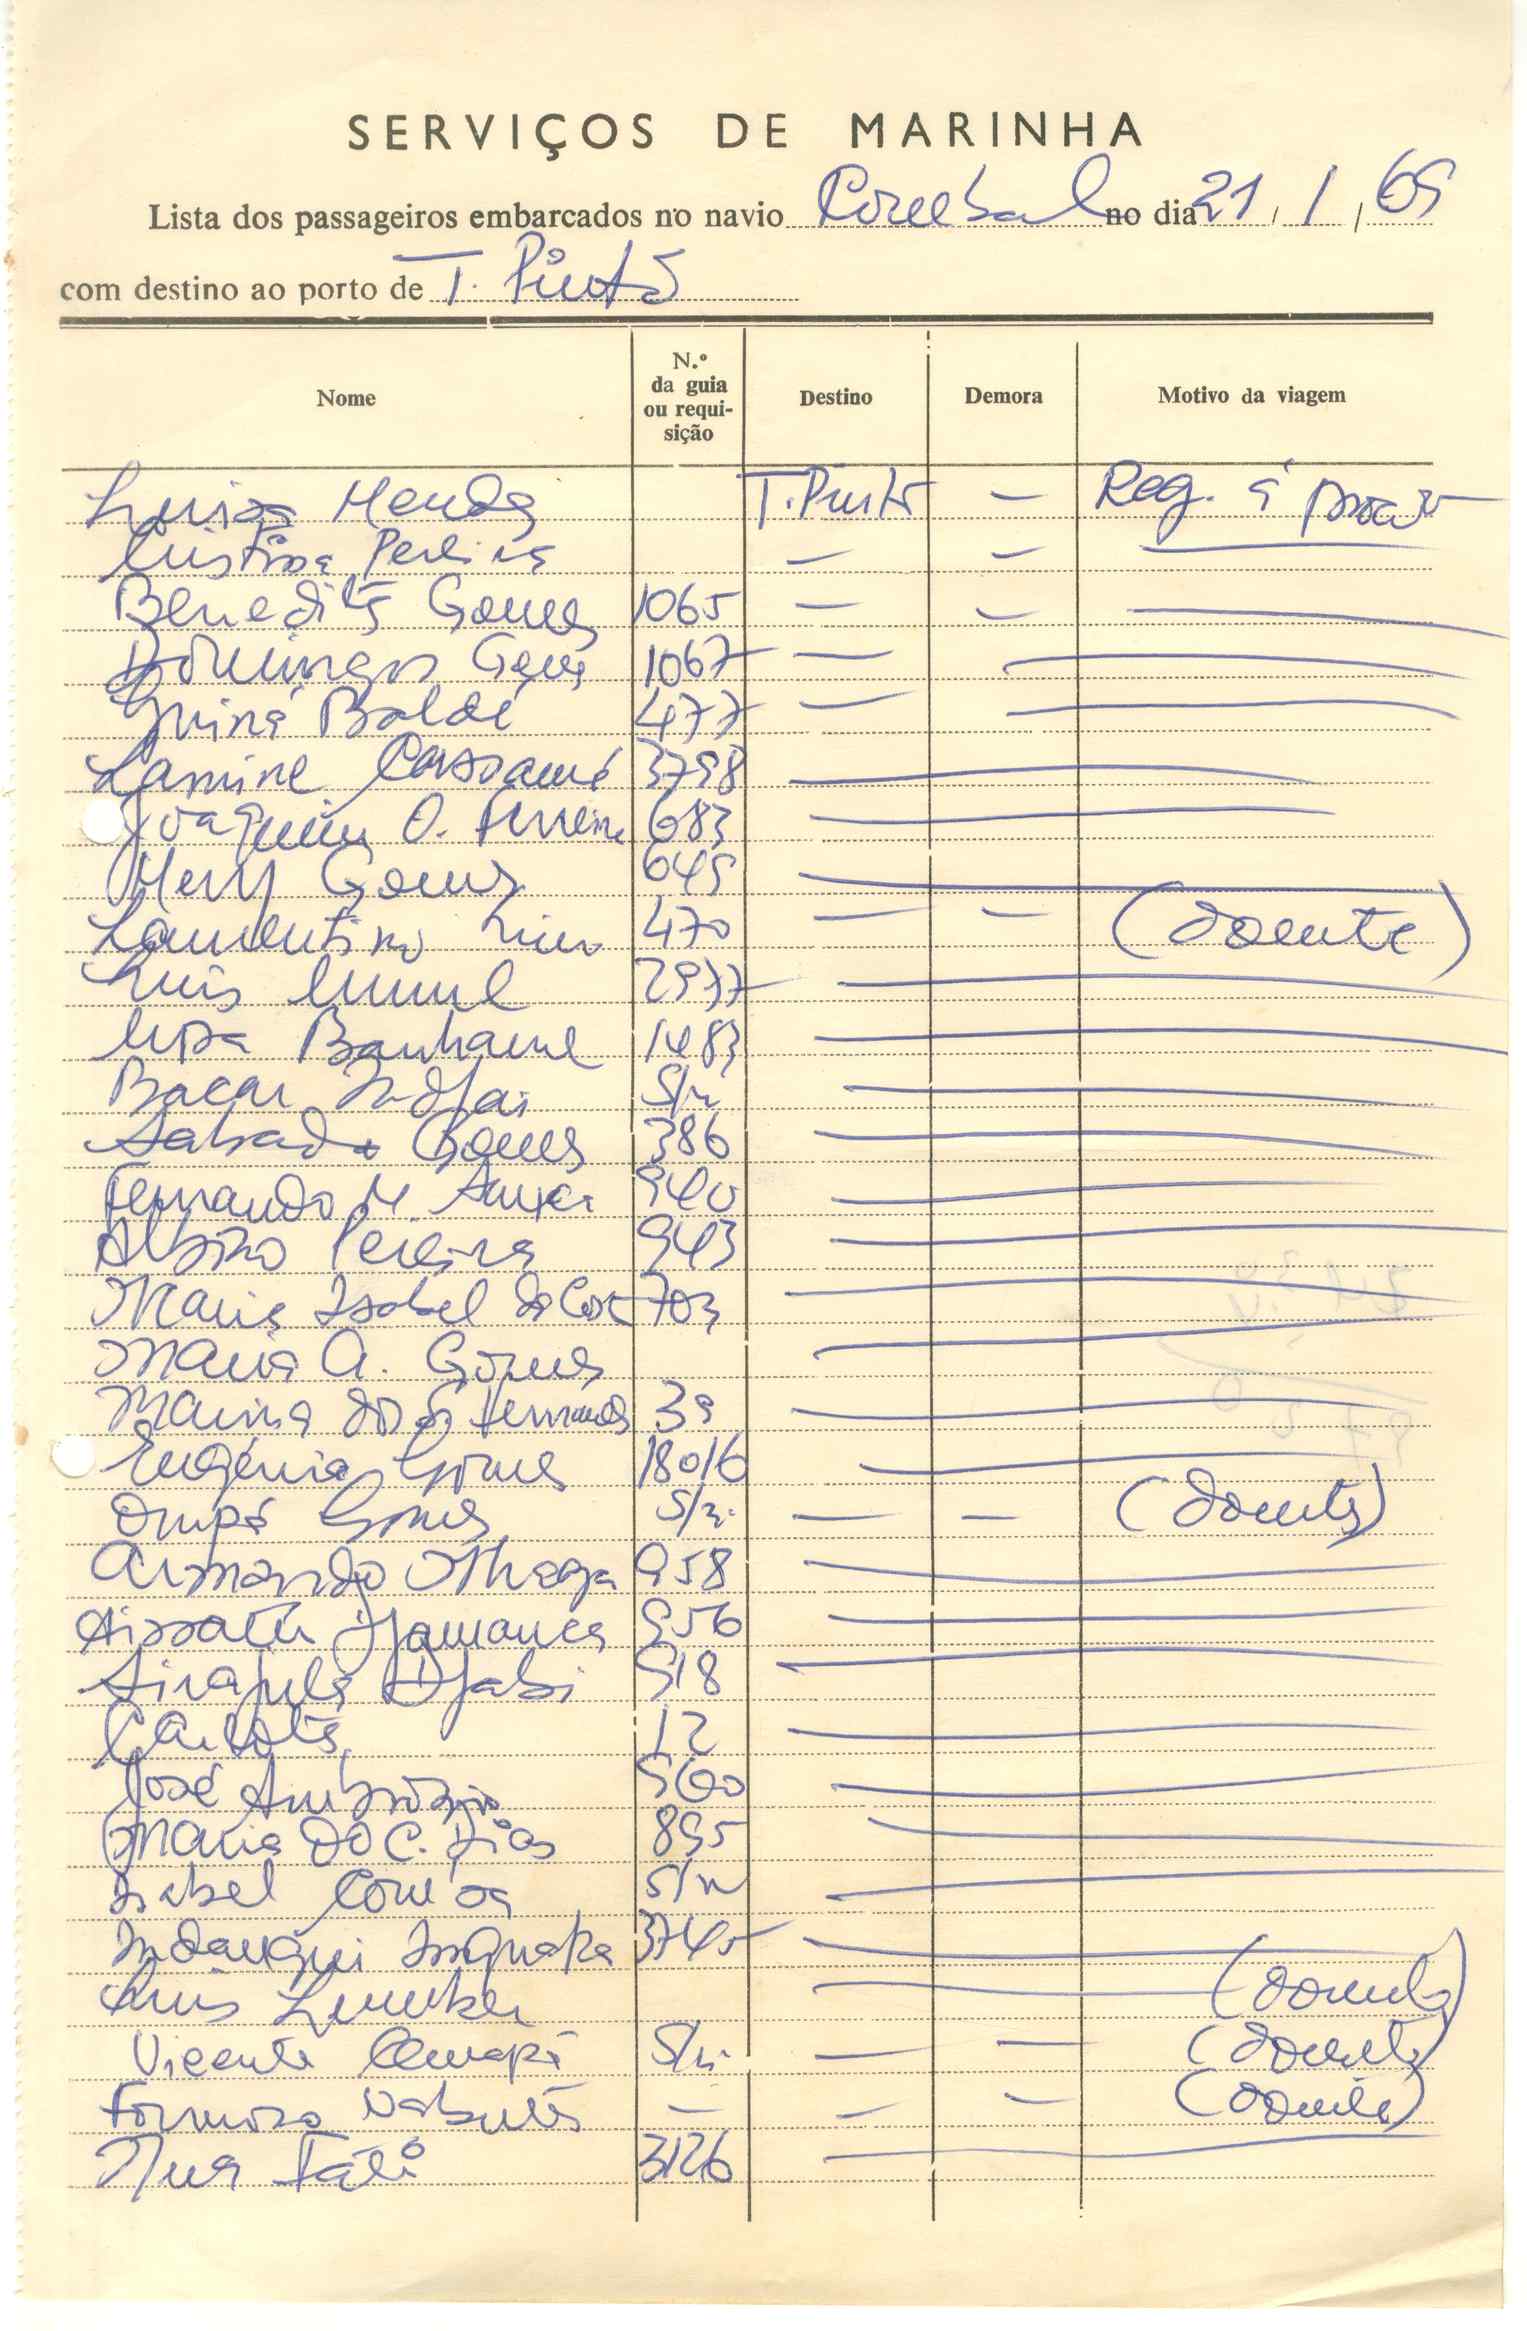 SERVIÇOS DE MARINHA
Lista dos passageiros embarcados no navio Corubal no dia 21 / 1 / 69
com destino ao porto de T. Pinto
Nome N.º da guia ou requisição Destino Demora Motivo da viagem
Luisa Mendes T. Pinto — Reg. à proced
Cristina Pereira — — —
Benedita Gomes 1065 — — —
Domingos Gomes 1067 — —
Guiná Baldé 477 — —
Lamine Cassamá 3798 —
Joaquim O. Ferreira 683 —
Mery Gomes 649 —
Laurentino 470 — — (doente)
Luis 2977 —
Banhame 1483 —
Bacar Indjai S/n —
Sabado Gomes 386 —
Fernando M. 940 —
Albino Pereira 943 —
Maria Isabel da Cost 703 —
Maria A. Gomes —
Marina dos S. Fernandes 39 —
Eugénia Gomes 18016 —
Gomes S/n. — — (doente)
Armando 958 —
Aissatu Djamanca 956 —
Djabi 518 —
Carlota 12 —
José Ambrósio 560 —
Maria do C. Dias 895 —
Isabel Correia S/n —
3745 —
Luis — (doente)
Vicente S/n. — — (doente)
Formoso — — — (doente)
Fati 3126 —